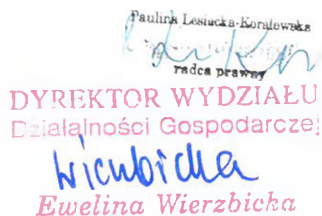 Paulina Lesiucka-Koralewska
radca prawny
DYREKTOR WYDZIAŁU
Działalności Gospodarczej
Wierzbicka
Ewelina Wierzbicka